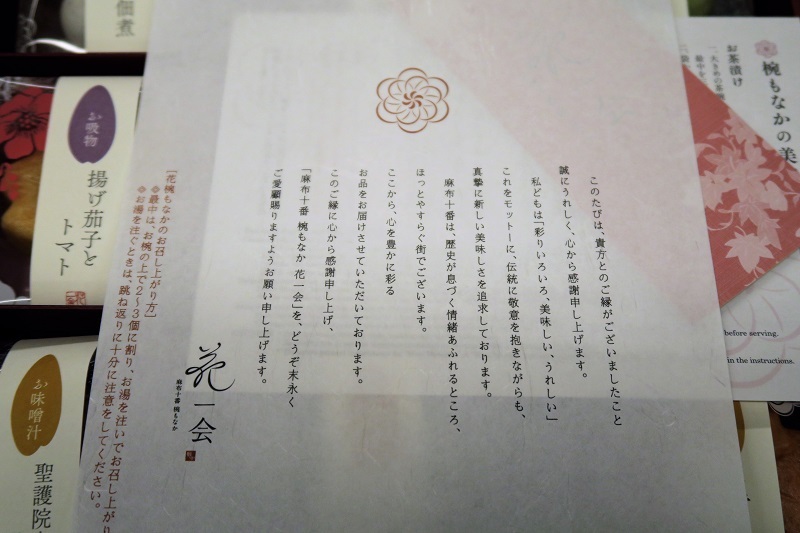 このたびは、貴方とのご縁がございましたこと
誠にうれしく、心から感謝申し上げます。
私どもは「彩りいろいろ、美味しい、うれしい」
これをモットーに、伝統に敬意を抱きながらも、
真摯に新しい美味しさを追求しております。
麻布十番は、歴史が息づく情緒あふれるところ、
ほっとやすらぐ街でございます。
ここから、心を豊かに彩る
お品をお届けさせていただいております。
このご縁に心から感謝申し上げ、
「麻布十番 椀もなか 花一会」を、どうぞ末永く
ご愛顧賜りますようお願い申し上げます。
花一会
麻布十番 椀もなか
［花椀もなかのお召し上がり方］
※最中は、お椀の上で2〜3個に割り、お湯を注いでお召し上がり
※お湯を注ぐときは、跳ね返りに十分に注意をしてください。
椀もなかの美
お茶漬け
一、大きめの茶
before serving.
in the instructions.
佃煮
お吸物
揚げ茄子と
トマト
お味噌汁
聖護院